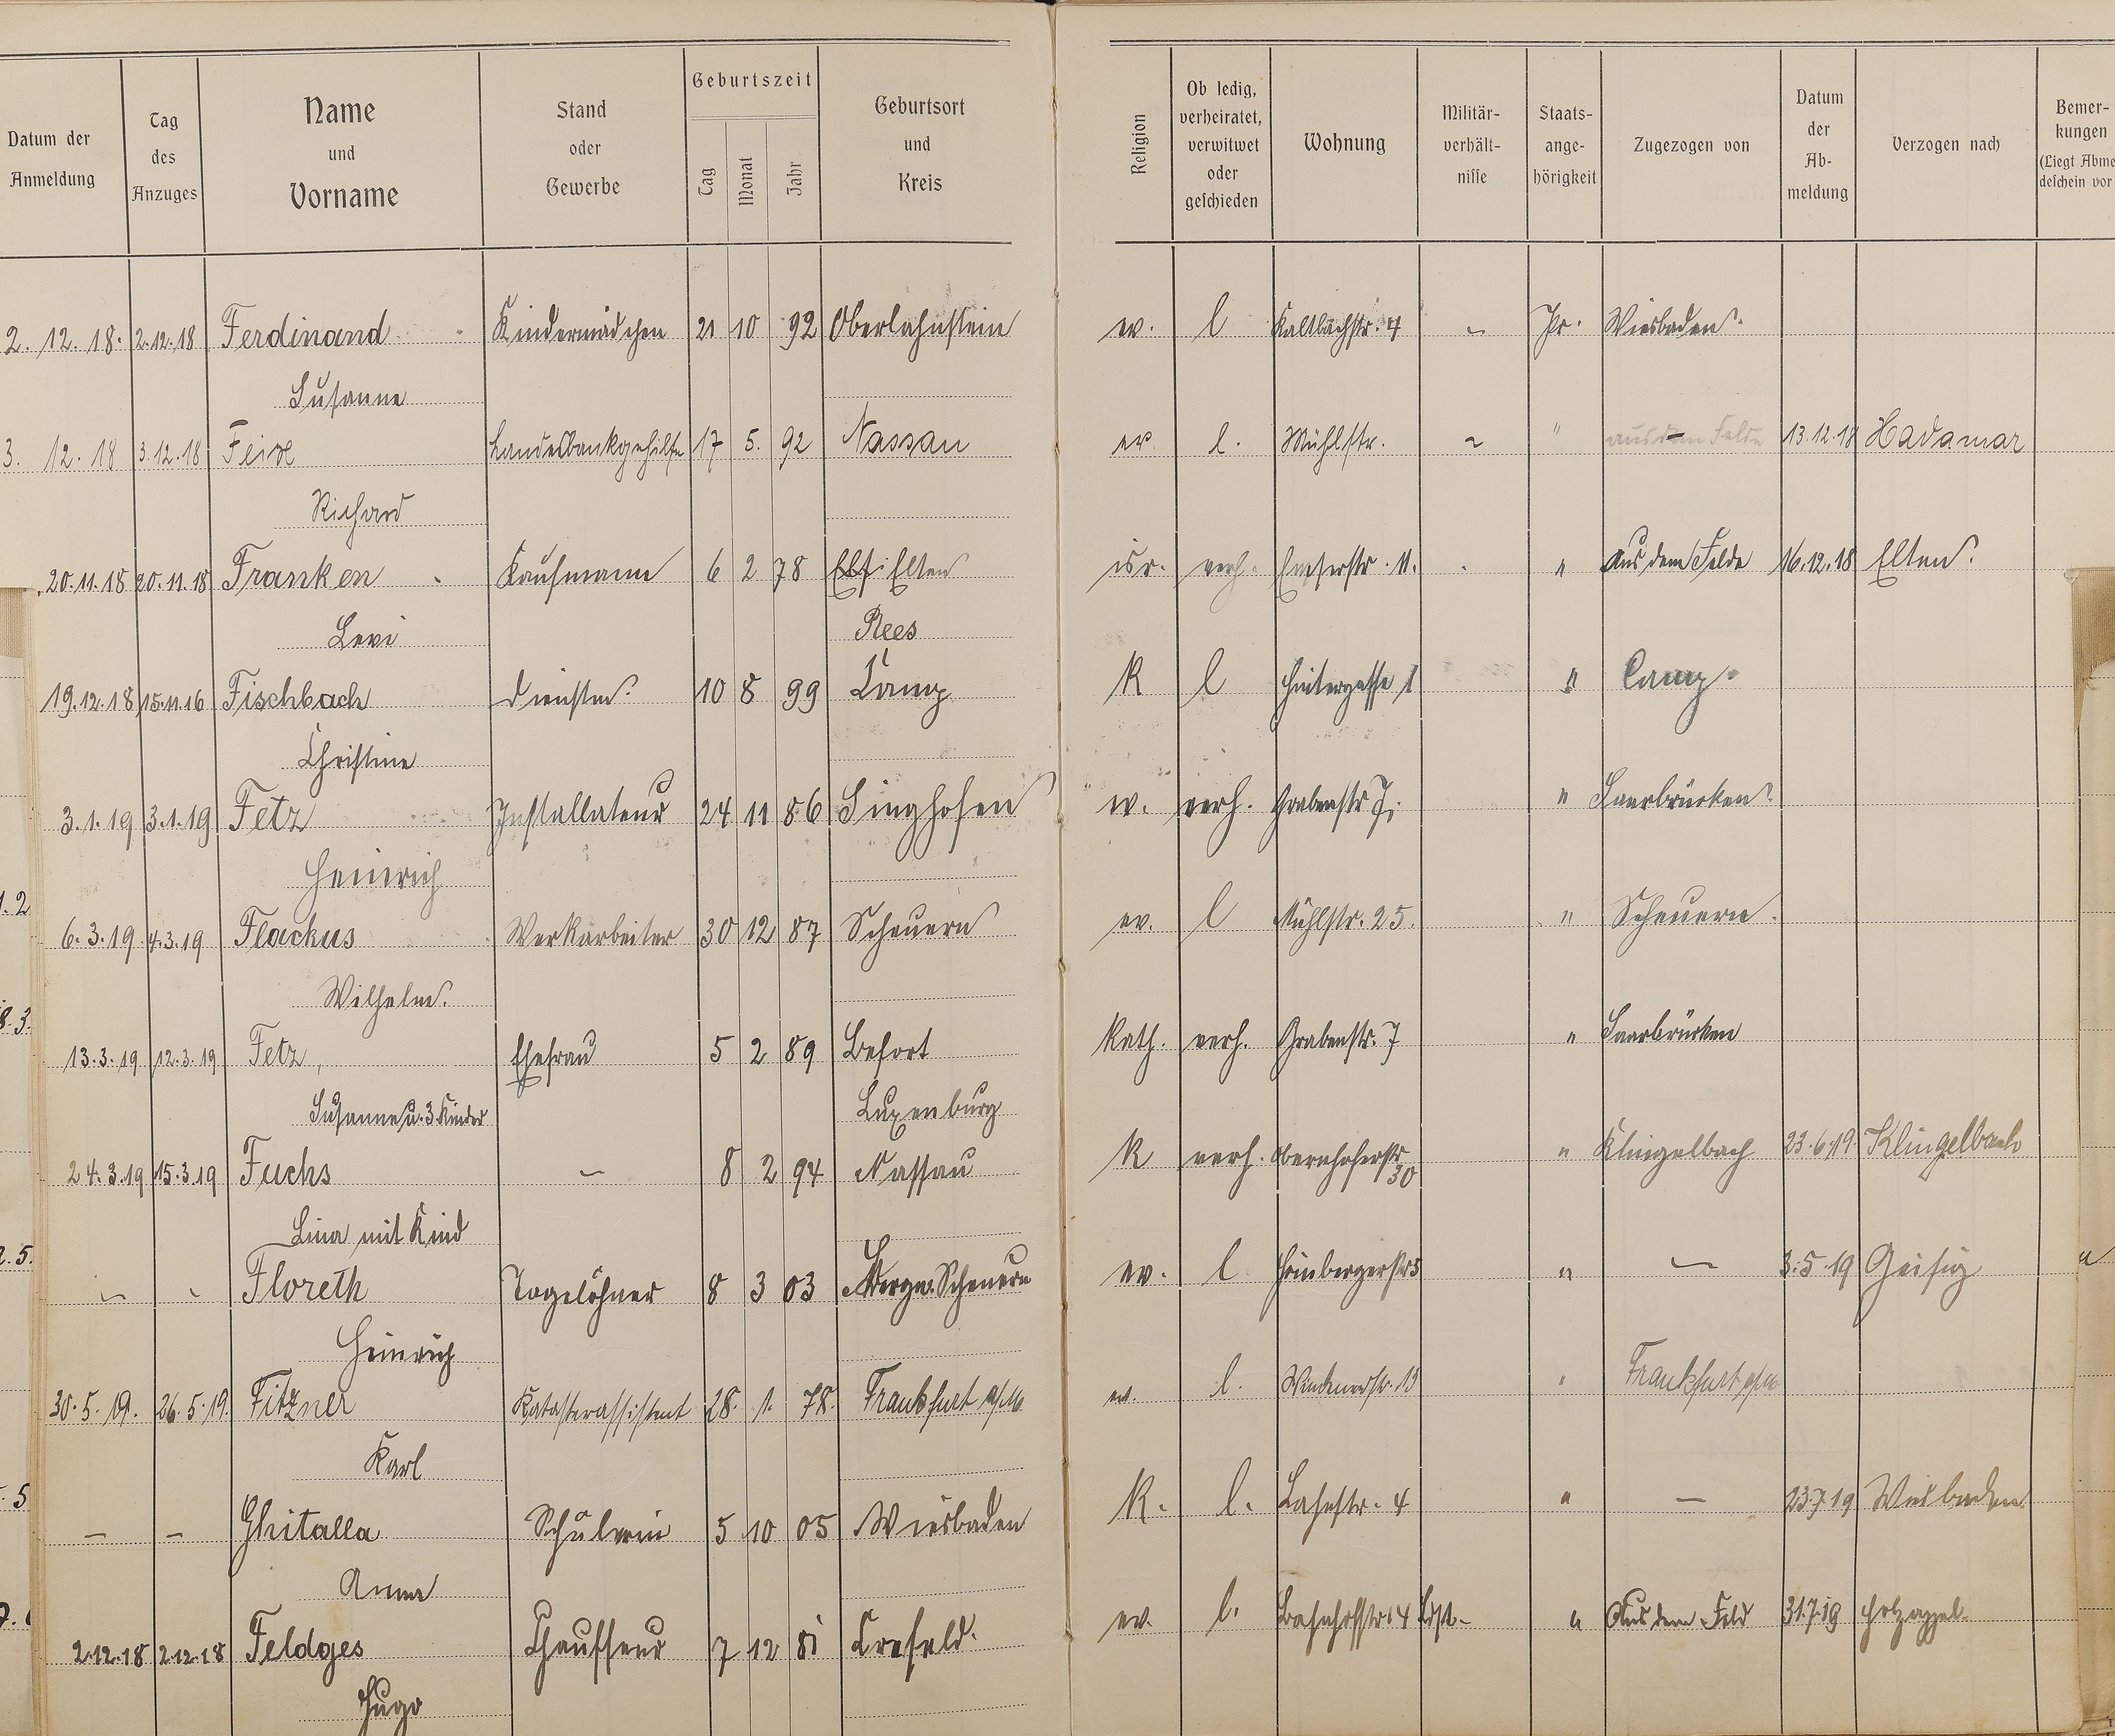 Datum der Anmeldung | Tag des Anzuges | Name und Vorname | Stand oder Gewerbe | Geburtszeit Tag Monat Jahr | Geburtsort und Kreis | Religion | Ob ledig, verheiratet, verwitwet oder geschieden | Wohnung | Militär-verhält-nisse | Staats-ange-hörigkeit | Zugezogen von | Datum der Ab-meldung | Verzogen nach | Bemer-kungen (Liegt Abme deschein vor
2. 12. 18. 2.12.18 Ferdinand Kindermädchen 21 10 92 Oberlahnstein ev. l Kaltbachstr. 4 Pr. Wiesbaden.
Susanne
3. 12. 18 3.12.18 Landesbankgehilfe 17 5. 92 Nassau ev. l. Mühlstr. " aus dem Felde 13.12.18 Hadamar
Richard
20.11.18 20.11.18 Franken Kaufmann 6 2 78 Elten isr. verh. Emserstr. 11. " Aus dem Felde 16.12.18 Elten.
Levi Rees
19.12.18 15.11.16 Fischbach Dienstm. 10 8 99 Camp K l Hintergasse 1 " Camp
Christine
3.1.19 3.1.19 Fetz Installateur 24 11 86 Singhofen ev. verh. Grabenstr 7. " Saarbrücken.
Heinrich
6.3.19 4.3.19 Flackus Werkarbeiter 30 12 87 Scheuern ev. l Mühlstr. 25. " Scheuern.
Wilhelm.
13.3.19 12.3.19 Fetz, Ehefrau 5 2 89 Befort Kath. verh. Grabenstr. 7 " Saarbrücken
Susanne u. 3 Kinder Luxenburg
24.3.19 15.3.19 Fuchs — 8 2 94 Nassau K verh. Obernhoferstr 30 " Klingelbach 23.6.19. Klingelbach
Lina mit Kind
Floreth Tagelöhner 8 3 03 Bergn. Scheuern ev. l " — 3.5.19 Geisig
Heinrich
30.5.19. 26.5.19. Fitzner Katasterassistent 28. 1. 78. Frankfurt a/M. ev. l. Frankfurt a/M.
Karl
— — Ghitalla Schülerin 5 10 05 Wiesbaden K. l. Lahnstr. 4 " — 23.7.19 Wiesbaden
Anna
2.12.18 2.12.18 Feldges Chauffeur 7 12 81 Crefeld. ev. l. Bahnhofstr. 4 Ldst. " Aus dem Feld 31.7.19 Holzappel.
Hugo